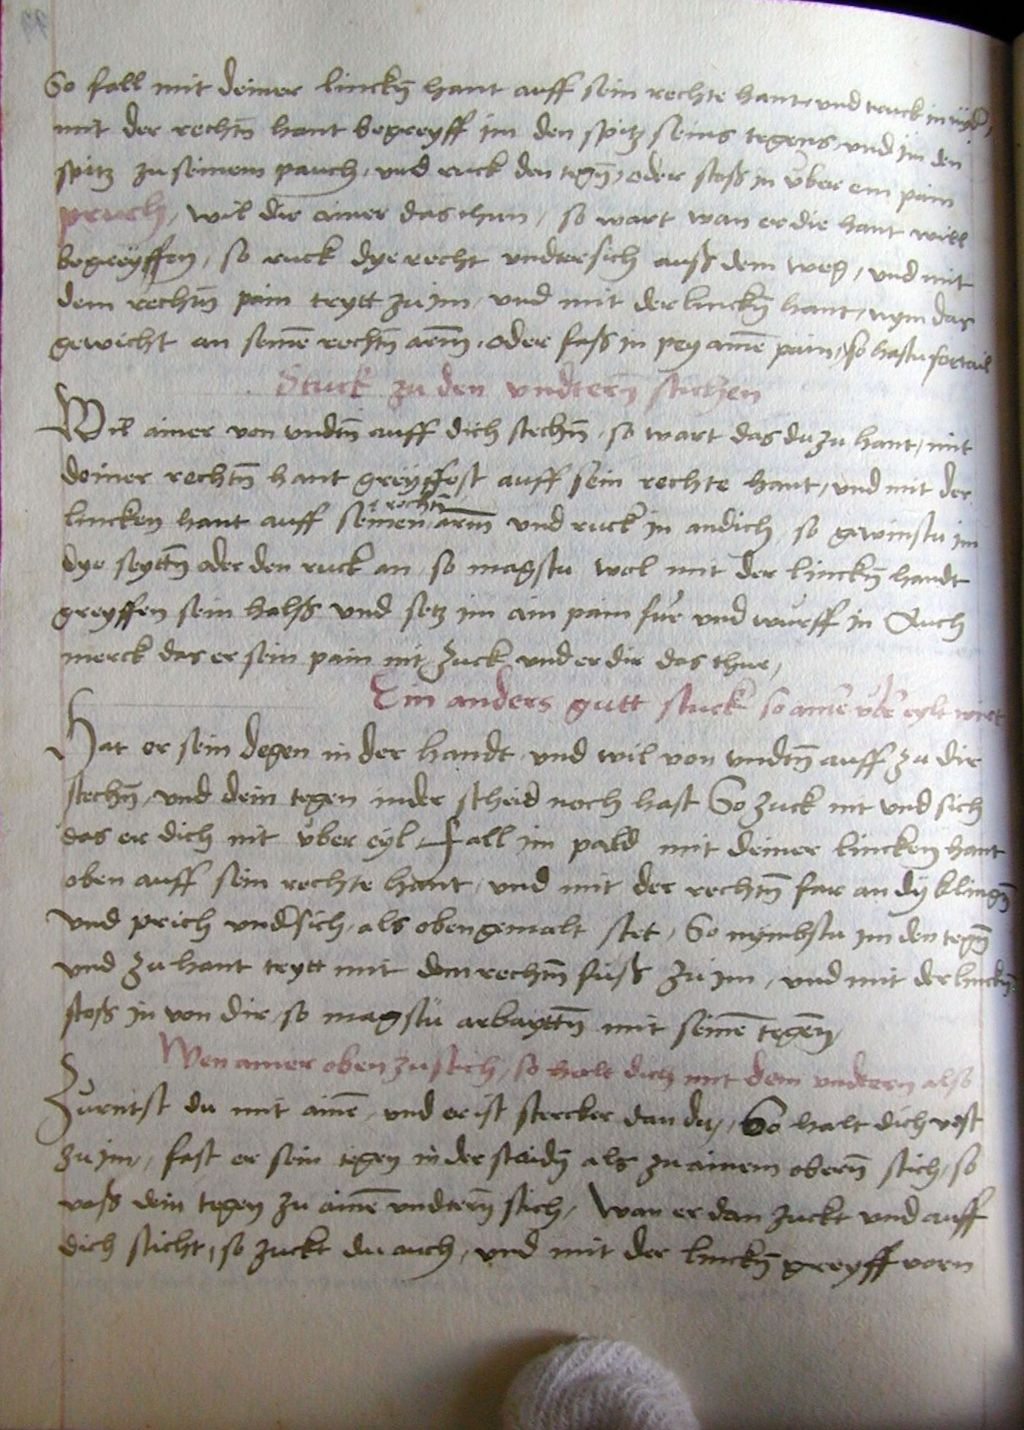 So fall mit deiner linckn̄ hant auff sein rechte hant, und truck in nyd͛,
mit der rechtn̄ hant begreyff im den spitz seins tegens, und im den
spitz zu seinem pauch, und ruck den tegn̄, oder stoß in über ein pain
pruch, wil dir ainer das thun, so wart wan er die hant will
begreÿffen, so ruck dye recht undtersich auß dem weg, und mit
dem rechtn̄ pain trytt zu im, und mit der linckn̄ hant, nym das
gewicht an seinē rechtn̄ arm̄, oder faß in pey ainē pain, so hastu fortail
Stuck zu den undtern̄ stichen
Wil ainer von undtn̄ auff dich stechn̄, so wart das du zu hant, mit
deiner rechtn̄ hant greÿffest auff sein rechte hant, und mit der
lincken hant auff seinen rechtn̄ arm̄ und ruck in an dich, so gewinstu im
dye seyttn̄ oder den ruck an, so magstu wol mit der linckn̄ handt
greyffen sein halß und setz im ain pain für und würff in Auch
merck das er sein pain nit zuck und er dir das thue,
Ein anders gutt stuck so ainē üb͛ eylt wirt
Hat er sein degen in der handt und wil von undtn̄ auff zu dir
stechn̄, und dein tegen in der scheid noch hast So zuck nit und sich
das er dich nit über eyl, fall im pald mit deiner lincken hant
oben auff sein rechte hant, und mit der rechtn̄ far an dÿ klingn̄
und prich und͛sich, als oben gemalt stet, So nymbstu im den tegn̄
und zu hant trytt mit dem rechtn̄ fuß zu im, und mit der linckn̄
stoß in von dir, so magstu arbayttn̄ mit seinē tegen̄,
Wen ainer oben zu stich, so halt dich mit dem undtern also
Zürntst du mit ainē, und er ist stercker dan du, So halt dich vest
zu im, fast er sein tegen in der staidn̄ als zu ainem obern̄ stich, so
vaß dein tegen zu ainē undtern̄ stich, wan er dan zuckt und auff
dich sticht, so zuckt du auch, und mit der linckn̄ greyff vorn